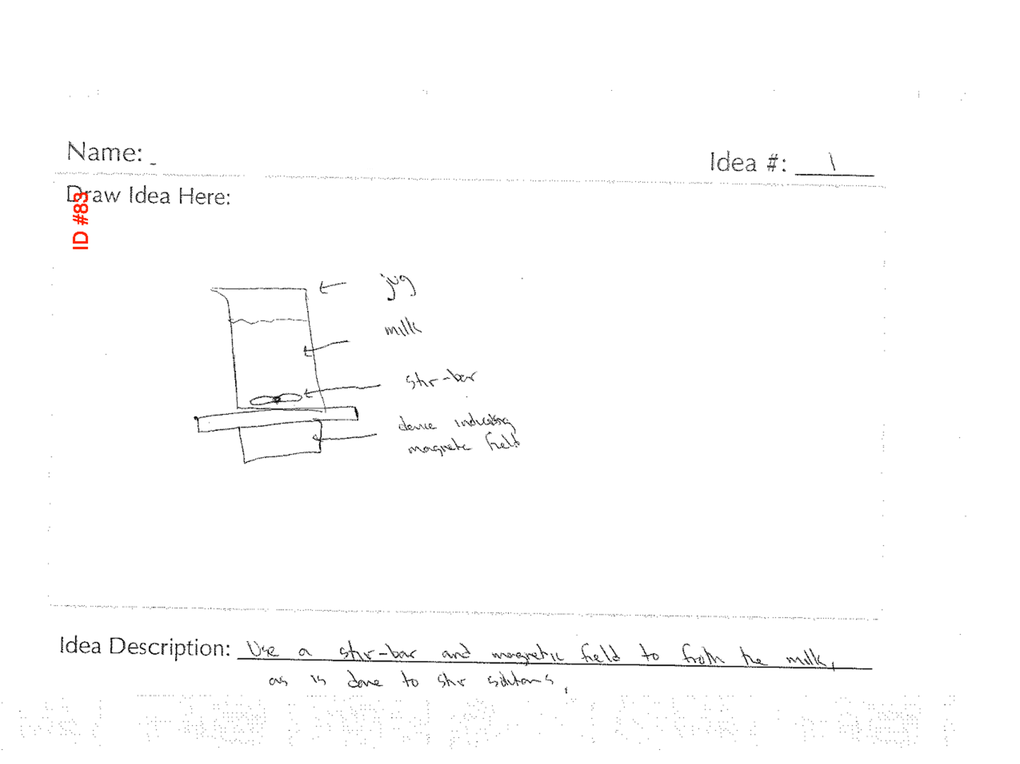 Name:
Idea #: 1
Draw Idea Here:
ID #83
jug
milk
stir-bar
device inducting
magnetic field
Idea Description: Use a stir-bar and magnetic field to froth the milk,
as is done to stir solutions,